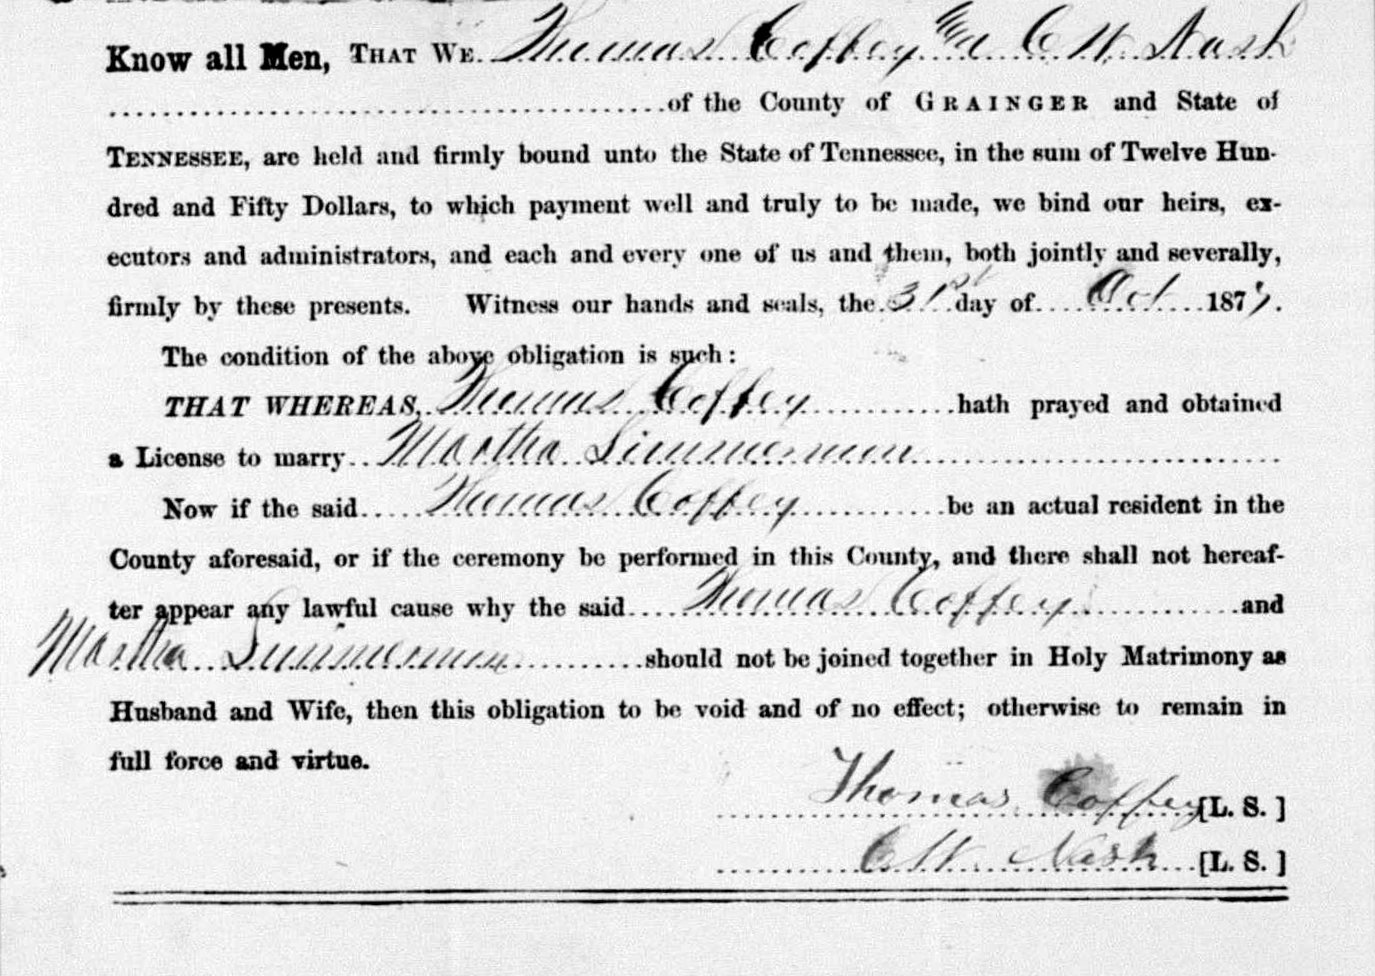 Know all Men, THAT WE Thomas Coffey and C. W. Nash
of the County of GRAINGER and State of
TENNESSEE, are held and firmly bound unto the State of Tennessee, in the sum of Twelve Hun-
dred and Fifty Dollars, to which payment well and truly to be made, we bind our heirs, ex-
ecutors and administrators, and each and every one of us and them, both jointly and severally,
firmly by these presents. Witness our hands and seals, the 31st day of Oct 187
The condition of the above obligation is such:
THAT WHEREAS, Thomas Coffey hath prayed and obtained
a License to marry Martha Simmermun
Now if the said Thomas Coffey be an actual resident in the
County aforesaid, or if the ceremony be performed in this County, and there shall not hereaf-
ter appear any lawful cause why the said Thomas Coffey and
Martha Simmermun should not be joined together in Holy Matrimony as
Husband and Wife, then this obligation to be void and of no effect; otherwise to remain in
full force and virtue.
Thomas Coffey [L. S.]
C. W. Nash [L. S.]